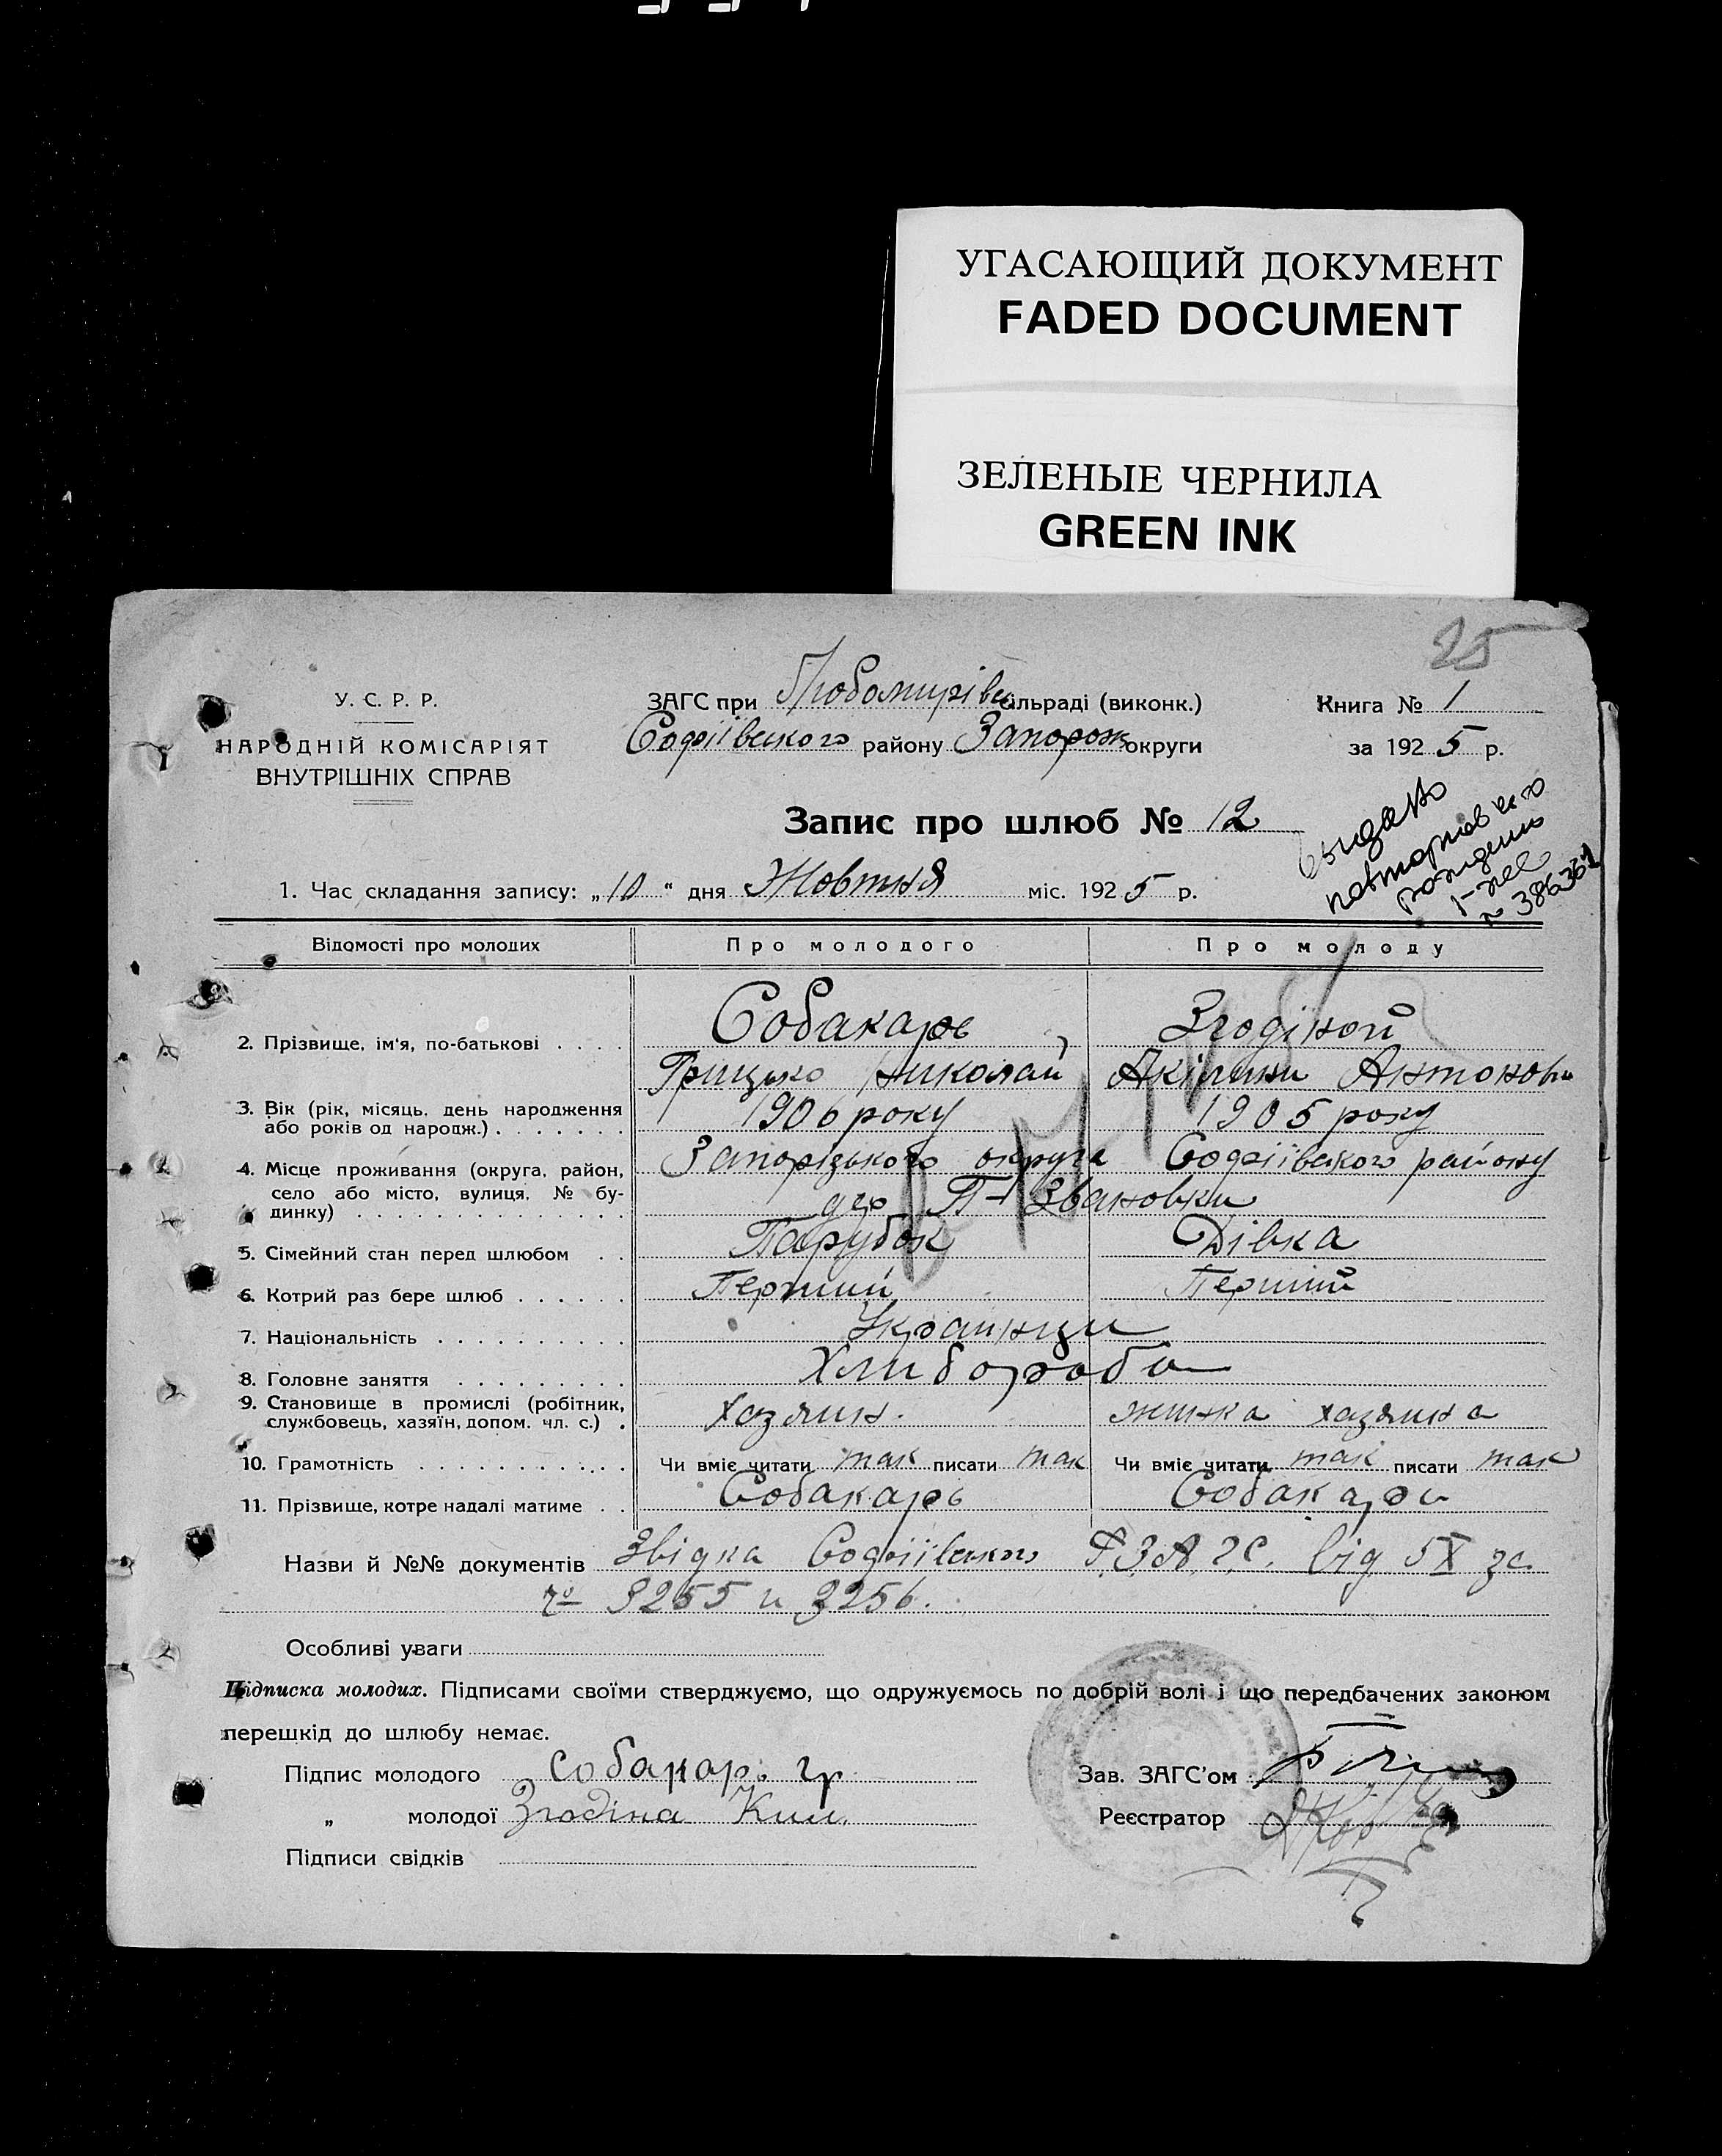 УГАСАЮЩИЙ ДОКУМЕНТ
FADED DOCUMENT
ЗЕЛЕНЫЕ ЧЕРНИЛА
GREEN INK
25
У. С. Р. Р.
НАРОДНІЙ КОМІСАРІЯТ
ВНУТРІШНІХ СПРАВ
ЗАГС при Любомирівс сільраді (виконк.)
Софіївського району Запорож округи
Книга № 1
за 1925 р.
Запис про шлюб № 12
1. Час складання запису: „10“ дня Жовтня міс. 1925 р.
выдано
повторное
№ 386361
Відомості про молодих Про молодого Про молоду
2. Прізвище, ім'я, по-батькові . . . . Собакарь Згодіной
Грицько Николай Акілини Антонов
3. Вік (рік, місяць, день народження або років од народж.) . . . . . . . 1906 року 1905 року
4. Місце проживання (округа, район, село або місто, вулиця, № будинку) . . . . . . . . . . . . . . Запорізького округа Софіївського району
П-Звановки
5. Сімейний стан перед шлюбом . . Парубок Дівка
6. Котрий раз бере шлюб . . . . . . Перший Перший
7. Національність . . . . . . . . . . Українци
8. Головне заняття . . . . . . . . . Хлибороби
9. Становище в промислі (робітник, службовець, хазяїн, допом. чл. с.) . хазяин. жинка хазяина
10. Грамотність . . . . . . . . . . . . Чи вміє читати так писати так Чи вміє читати так писати так
11. Прізвище, котре надалі матиме . . Собакарь Собакарь
Назви й №№ документів Звідка Софіївського Р.З.А.Г.С. від 5X за
№ 3255 и 3256.
Особливі уваги
Підписка молодих. Підписами своїми стверджуємо, що одружуємось по добрій волі і що передбачених законом
перешкід до шлюбу немає.
Підпис молодого Собакарь Гр
„ молодої Згодіна Кил.
Підписи свідків
Зав. ЗАГС'ом
Реєстратор